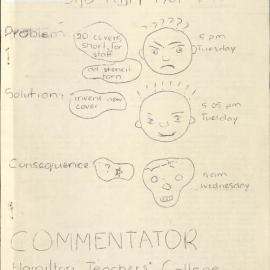 Problem:
20 covers
short for
staff
old stencil
torn
? ? ? ? ?
5 pm
Tuesday
Solution:
invent new
cover
5 05 pm
Tuesday
Consequence
?
5 am
Wednesday
COMMENTATOR
Hamilton Teachers' College